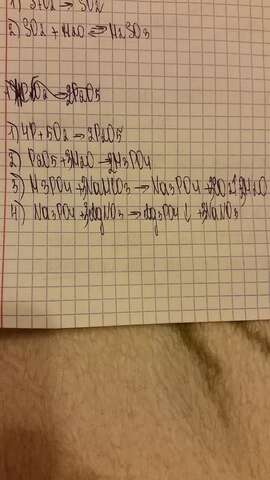 1) S+O2 → SO2
2) SO2 + H2O ⇌ H2SO3
1) 4P+5O2 → 2P2O5
2) P2O5+3H2O → 2H3PO4
3) H3PO4+3NaHCO3 → Na3PO4+3CO2↑+3H2O
4) Na3PO4+3AgNO3 → Ag3PO4↓ +3NaNO3